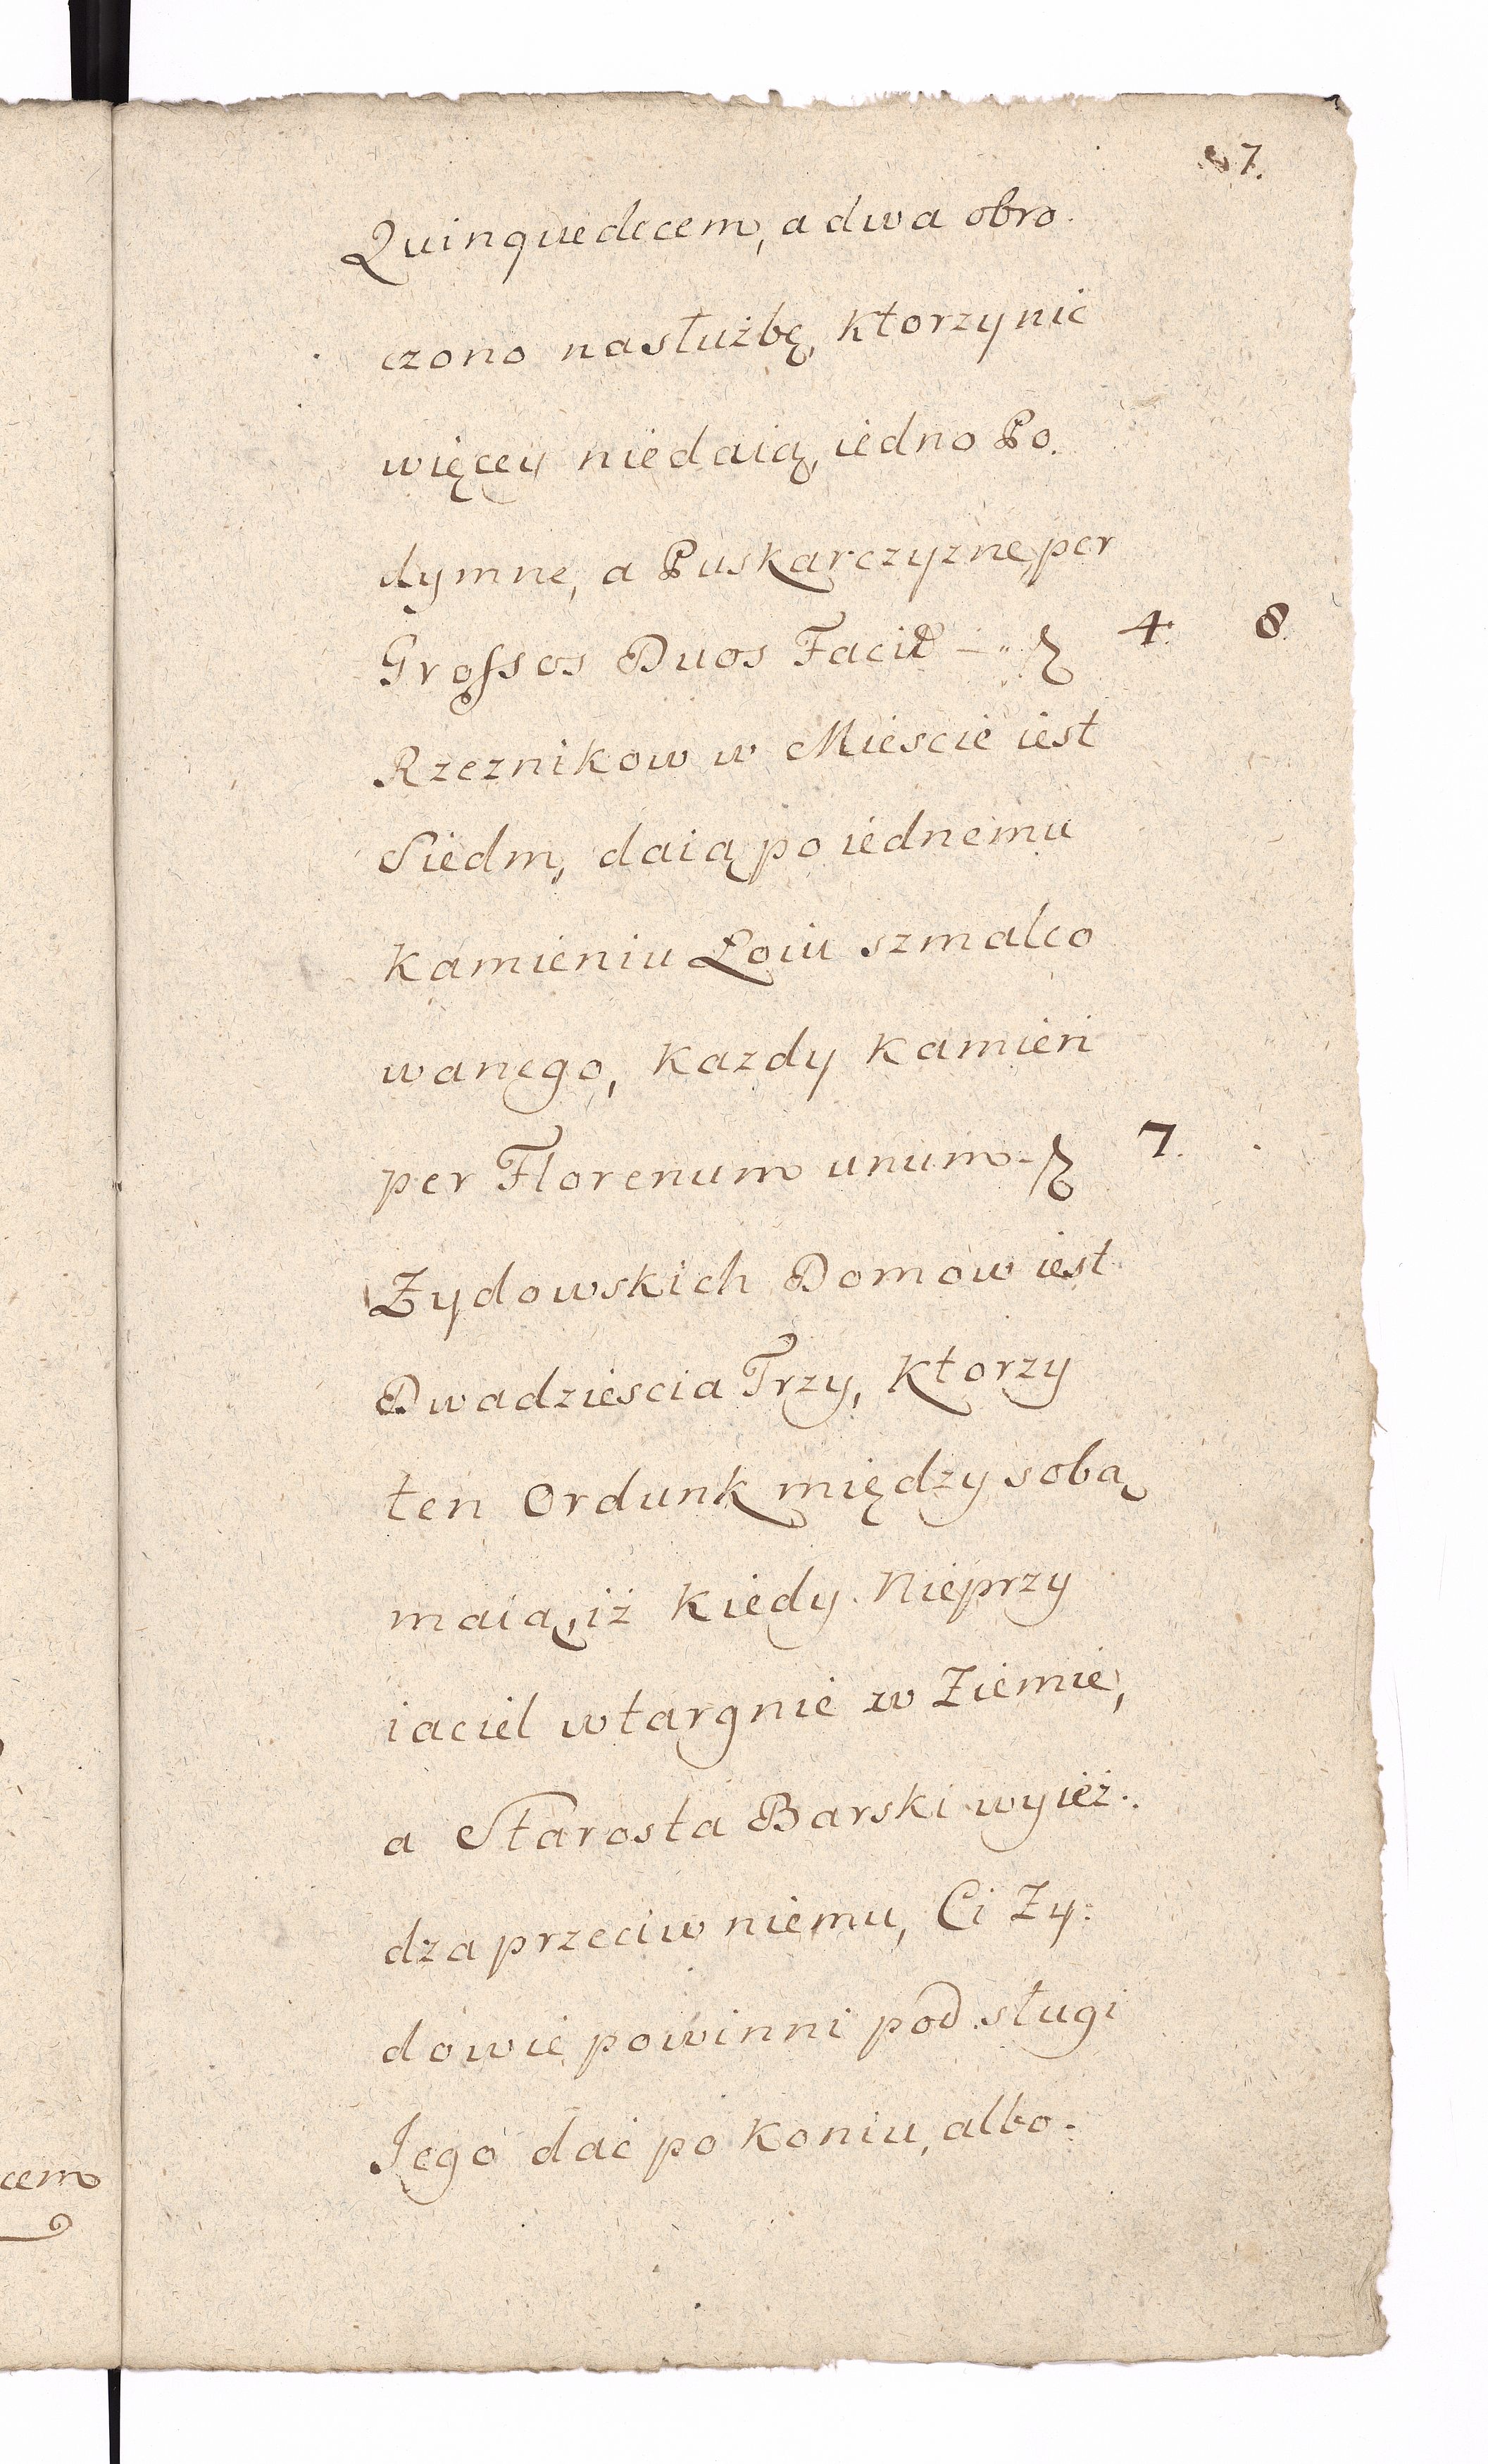 7.
Quinquedecem, a dwa obro.
czono na służbę, Ktorzy nic
więcey niedaią, iedno Po.
dymne, a Puskarczyzne, per
Grossos Duos Facit 4. 8.
Rzeznikow w Miescie iest
Siedm, daią po iednemu
Kamieniu Łoiu szmalco
wanego, Kazdy Kamień
per Florenum unum 7.
Zydowskich Domow iest
Dwadziescia Trzy, Ktorzy
ten Ordunk między sobą
maią, iż Kiedy Nieprzy
iaciel wtargnie w Ziemie,
a Starosta Barski wyież.
dza przeciw niemu, Ci Zy:
dowie powinni pod sługi
Jego dać po Koniu, albo.
cem